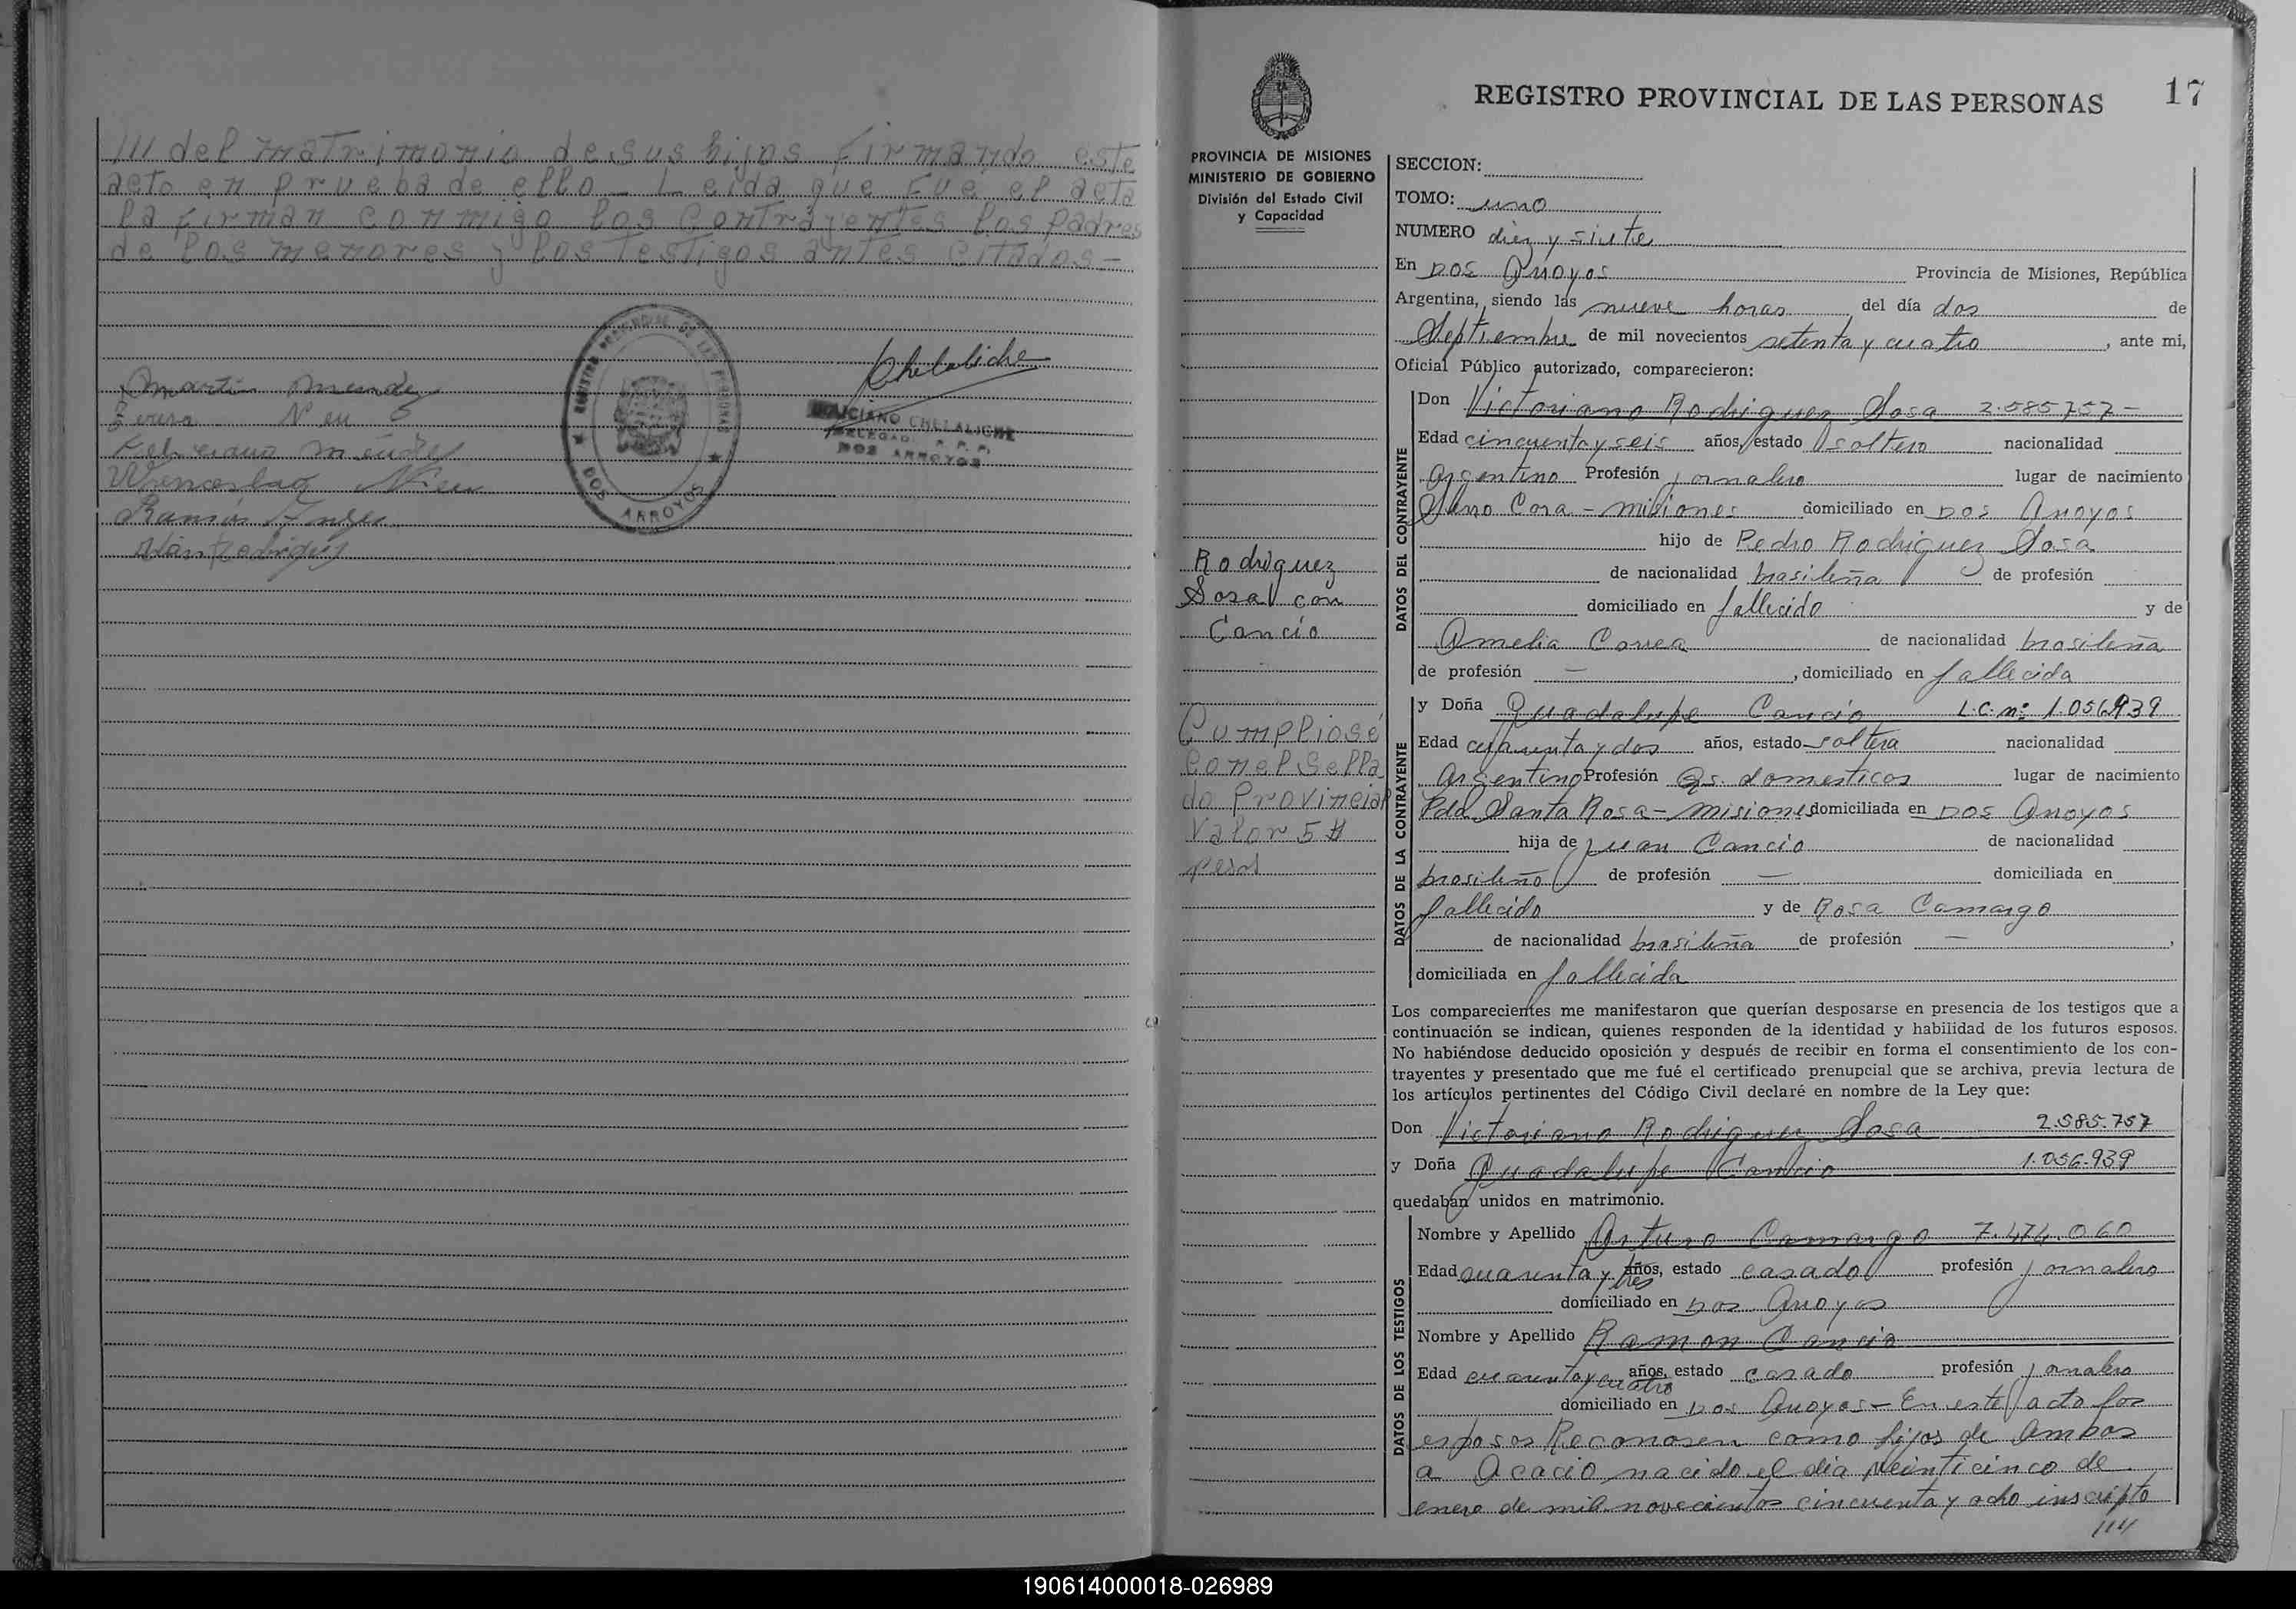 /// del matrimonio de sus hijos firmando este
acto en prueba de ello - Leida que fue el acta
la firman conmigo los contrayentes los padres
de los menores y los testigos antes citados -
REGISTRO PROVINCIAL DE LAS PERSONAS
DOS ARROYOS
Chelaliche
CHELALICHE
DOS ARROYOS
Martin Mende
Neu
Wenceslao Neu
Ramón
PROVINCIA DE MISIONES
MINISTERIO DE GOBIERNO
División del Estado Civil
y Capacidad
Rodriguez
Sosa con
Cancio
Cumpliose
con el Sella
do Provincial
Valor 5 $
pesos
REGISTRO PROVINCIAL DE LAS PERSONAS 17
SECCION:
TOMO: uno
NUMERO diez y siete
En Dos Arroyos Provincia de Misiones, República
Argentina, siendo las nueve horas del día dos de
Septiembre de mil novecientos setenta y cuatro, ante mi,
Oficial Público autorizado, comparecieron:
DATOS DEL CONTRAYENTE
Don Victoriano Rodriguez Sosa 2.585.757 -
Edad cincuenta y seis años, estado soltero nacionalidad
argentino Profesión jornalero lugar de nacimiento
Cora - misiones domiciliado en Dos Arroyos
hijo de Pedro Rodriguez Sosa
de nacionalidad brasileña de profesión
domiciliado en fallecido y de
Amelia Correa de nacionalidad brasileña
de profesión — , domiciliado en fallecida
DATOS DE LA CONTRAYENTE
y Doña Guadalupe Cancio L.C. nº 1.056.939
Edad cuarenta y dos años, estado soltera nacionalidad
Argentino Profesión Qs. domesticos lugar de nacimiento
Pdd Santa Rosa - misiones domiciliada en Dos Arroyos
hija de Juan Cancio de nacionalidad
brasileño de profesión — domiciliada en
fallecido y de Rosa Camargo
de nacionalidad brasileña de profesión — ,
domiciliada en fallecida
Los comparecientes me manifestaron que querían desposarse en presencia de los testigos que a
continuación se indican, quienes responden de la identidad y habilidad de los futuros esposos.
No habiéndose deducido oposición y después de recibir en forma el consentimiento de los con-
trayentes y presentado que me fué el certificado prenupcial que se archiva, previa lectura de
los artículos pertinentes del Código Civil declaré en nombre de la Ley que:
Don Victoriano Rodriguez Sosa 2.585.757
y Doña Guadalupe Cancio 1.056.939
quedaban unidos en matrimonio.
DATOS DE LOS TESTIGOS
Nombre y Apellido Arturo Camargo 7.474.060
Edad cuarenta y tres años, estado casado profesión jornalero
domiciliado en Dos Arroyos
Nombre y Apellido Ramon Cancio
Edad cuarenta y cuatro años, estado casado profesión jornalero
domiciliado en Dos Arroyos - En este acto los
esposos Reconosen como hijos de Ambos
a Acacio nacido el dia veinticinco de
enero de mil novecientos cincuenta y ocho inscripto
///
190614000018-026989